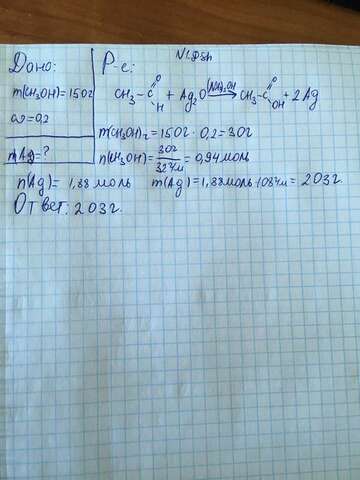 Дано:
Р-е:
m(CH₃OH)=150г
ω=0,2
m(Ag)=?
CH₃-C(=O)-H + Ag₂O → CH₃-C(=O)-OH + 2Ag
m(CH₃OH)₂=150г·0,2=30г
n(CH₃OH)=30г/32г/м=0,94моль
n(Ag)=1,88моль m(Ag)=1,88моль·108г/м=203г
Ответ: 203г.